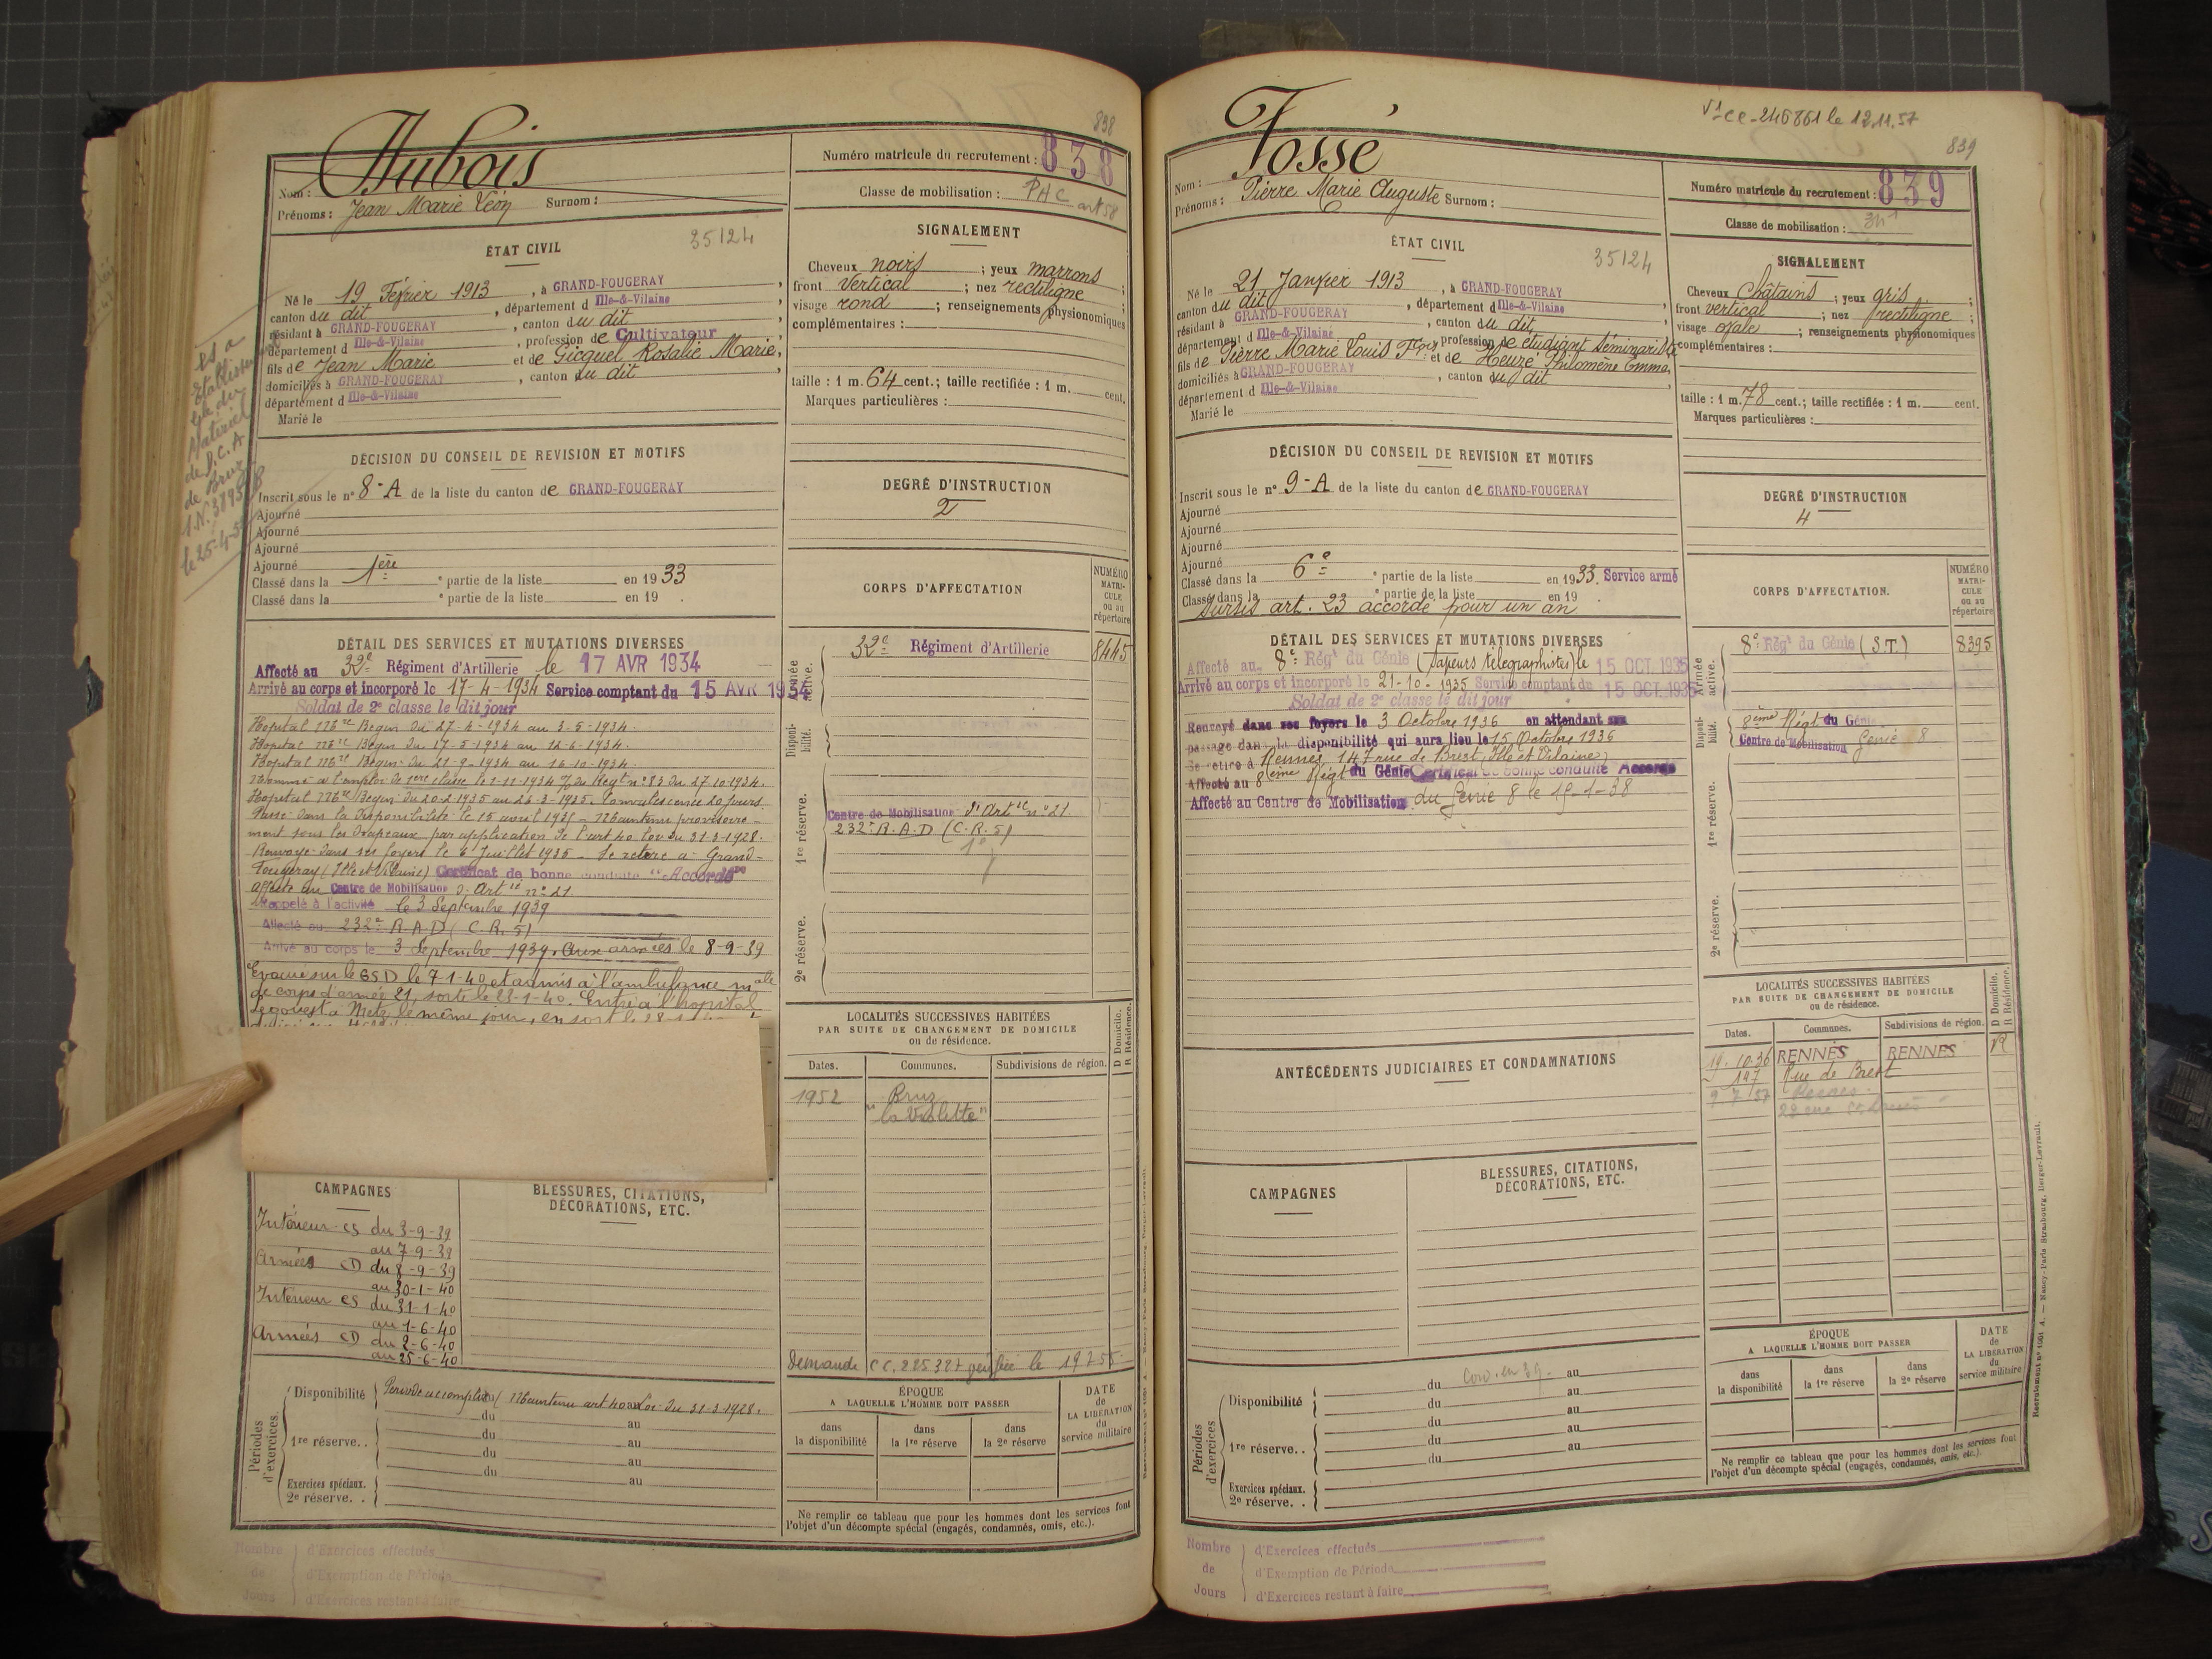 838
Hubois
Nom :
Prénoms : Jean Marie Léon Surnom :
Numéro matricule du recrutement : 838
Classe de mobilisation : PAC art 58
ÉTAT CIVIL
35124
Né le 19 Février 1913, à GRAND-FOUGERAY,
canton du dit, département d Ille-&-Vilaine
résidant à GRAND-FOUGERAY, canton du dit
département d Ille-&-Vilaine, profession de Cultivateur
fils de Jean Marie et de Gicquel Rosalie Marie,
domiciliés à GRAND-FOUGERAY, canton du dit
département d Ille-&-Vilaine
Marié le
SIGNALEMENT
Cheveux noirs ; yeux marrons ;
front vertical ; nez rectiligne ;
visage rond ; renseignements physionomiques
complémentaires :
taille : 1 m. 64 cent.; taille rectifiée : 1 m. cent.
Marques particulières :
est a
Etablissem
Gal du
Matériel
de D.C.A
de Bruz
le 25-4-5
DÉCISION DU CONSEIL DE REVISION ET MOTIFS
Inscrit sous le n° 8-A de la liste du canton de GRAND-FOUGERAY
Ajourné
Ajourné
Ajourné
Ajourné
Classé dans la 1ère e partie de la liste en 1933
Classé dans la e partie de la liste en 19 .
DEGRÉ D'INSTRUCTION
2
CORPS D'AFFECTATION
NUMÉRO MATRICULE ou au répertoire
DÉTAIL DES SERVICES ET MUTATIONS DIVERSES
Affecté au 32e Régiment d'Artillerie le 17 AVR 1934
Arrivé au corps et incorporé le 17-4-1934 Service comptant du 15 AVR 1934
Soldat de 2e classe le dit jour
Hopital Mre Begin du 27-4-1934 au 3-5-1934.
Hopital Mre Begin du 17-5-1934 au 12-6-1934.
Hopital Mre Begin du 21-9-1934 au 16-10-1934.
Nommé à l'emploi de 1ere classe le 1-11-1934 O/du Regt n° 83 du 27.10.1934.
Hopital Mre Begin du 20-2-1935 au 26-3-1935. Convalescence 20 jours.
Passé dans la disponibilité le 15 avril 1935 - Maintenu provisoire-
ment sous les drapeaux par application de l'art 40 loi du 31-3-1928.
Renvoyé dans ses foyers le 6 Juillet 1935 - Se retire à Grand-
Fougeray (Ille et Vilaine) Certificat de bonne conduite "Accordé"
Affecté au Centre de Mobilisation d'Artie n° 21
Rappelé à l'activité le 3 Septembre 1939
Affecté au 232e R.A.D (C.R.5)
Arrivé au corps le 3 Septembre 1939. Aux armées le 8-9-39
Evacué sur le GSD le 7-1-40 et admis à l'ambulance male
de corps d'armée 21, sorti le 23-1-40. Entré à l'hopital
Legouest à Metz le même jour, en sort le 28-1
Armée active.
32e Régiment d'Artillerie 8445
Disponibilité.
1re réserve.
Centre de Mobilisation d'Artie n° 21.
232e R.A.D (C.R.5)
2e réserve.
LOCALITÉS SUCCESSIVES HABITÉES
PAR SUITE DE CHANGEMENT DE DOMICILE
ou de résidence.
D Domicile. R Résidence.
Dates. Communes. Subdivisions de région.
1952 Bruz
"la Violette"
CAMPAGNES
Intérieur CS du 3-9-39
au 7-9-39
Armées CD du 8-9-39
au 30-1-40
Intérieur CS du 31-1-40
au 1-6-40
Armées CD du 2-6-40
au 25-6-40
BLESSURES, CITATIONS,
DÉCORATIONS, ETC.
Demande CC. 225327 le 19255
Périodes d'exercices.
Disponibilité Période accomplie (Maintenu art 40 Loi du 31-3-1928.
du au
1re réserve. . du au
du au
du au
Exercices spéciaux.
2e réserve. .
ÉPOQUE
A LAQUELLE L'HOMME DOIT PASSER
dans la disponibilité dans la 1re réserve dans la 2e réserve
DATE de LA LIBÉRATION du service militaire
Ne remplir ce tableau que pour les hommes dont les services font
l'objet d'un décompte spécial (engagés, condamnés, omis, etc.).
Nombre de Jours
d'Exercices effectués
d'Exemption de Période
d'Exercices restant à faire
V1-CC-246861 le 12.11.57
839
Fossé
Nom :
Prénoms : Pierre Marie Auguste Surnom :
Numéro matricule du recrutement : 839
Classe de mobilisation :
ÉTAT CIVIL
35124
Né le 21 Janvier 1913, à GRAND-FOUGERAY
canton du dit, département d Ille-&-Vilaine,
résidant à GRAND-FOUGERAY, canton du dit
département d Ille-&-Vilaine, profession de étudiant séminariste
fils de Pierre Marie Louis Fçois et de Heuzé Philomène Emma,
domiciliés à GRAND-FOUGERAY, canton du dit
département d Ille-&-Vilaine
Marié le
SIGNALEMENT
Cheveux Châtains ; yeux gris ;
front vertical ; nez rectiligne ;
visage ovale ; renseignements physionomiques
complémentaires :
taille : 1 m. 78 cent.; taille rectifiée : 1 m. cent.
Marques particulières :
DÉCISION DU CONSEIL DE REVISION ET MOTIFS
Inscrit sous le n° 9-A de la liste du canton de GRAND-FOUGERAY
Ajourné
Ajourné
Ajourné
Ajourné
Classé dans la 6e e partie de la liste en 1933. Service armé
Classé dans la e partie de la liste en 19 .
Sursis art. 23 accordé pour un an
DEGRÉ D'INSTRUCTION
4
CORPS D'AFFECTATION.
NUMÉRO MATRICULE ou au répertoire
DÉTAIL DES SERVICES ET MUTATIONS DIVERSES
Affecté au 8e Régt du Génie (Sapeurs télégraphistes) le 15 OCT. 1935
Arrivé au corps et incorporé le 21-10-1935 Service comptant du 15 OCT. 1935
Soldat de 2e classe le dit jour
Renvoyé dans ses foyers le 3 Octobre 1936 en attendant son
passage dans la disponibilité qui aura lieu le 15 Octobre 1936
Se retire à Rennes, 147 rue de Brest, (Ille et Vilaine)
Affecté au 8ème Régt du Génie Certificat de bonne conduite Accordé
Affecté au Centre de Mobilisation du Génie 8 le 15-1-38
Armée active.
8e Régt du Génie (S.T.) 8395
Disponibilité.
8ème Régt du Génie
Centre de Mobilisation Génie 8
1re réserve.
2e réserve.
LOCALITÉS SUCCESSIVES HABITÉES
PAR SUITE DE CHANGEMENT DE DOMICILE
ou de résidence.
D Domicile. R Résidence.
Dates. Communes. Subdivisions de région.
19.10.36 RENNES RENNES R
147 Rue de Brest
9 7 57 Rennes
ANTÉCÉDENTS JUDICIAIRES ET CONDAMNATIONS
CAMPAGNES
BLESSURES, CITATIONS,
DÉCORATIONS, ETC.
Périodes d'exercices
Disponibilité du Conv. en 39. au
du au
du au
1re réserve. . du au
du au
Exercices spéciaux.
2e réserve. .
ÉPOQUE
A LAQUELLE L'HOMME DOIT PASSER
dans la disponibilité dans la 1re réserve dans la 2e réserve
DATE de LA LIBÉRATION du service militaire
Ne remplir ce tableau que pour les hommes dont les services font
l'objet d'un décompte spécial (engagés, condamnés, omis, etc.).
Recrutement n° 1001 A. — Nancy-Paris-Strasbourg, Berger-Levrault.
Nombre de Jours
d'Exercices effectués
d'Exemption de Période
d'Exercices restant à faire